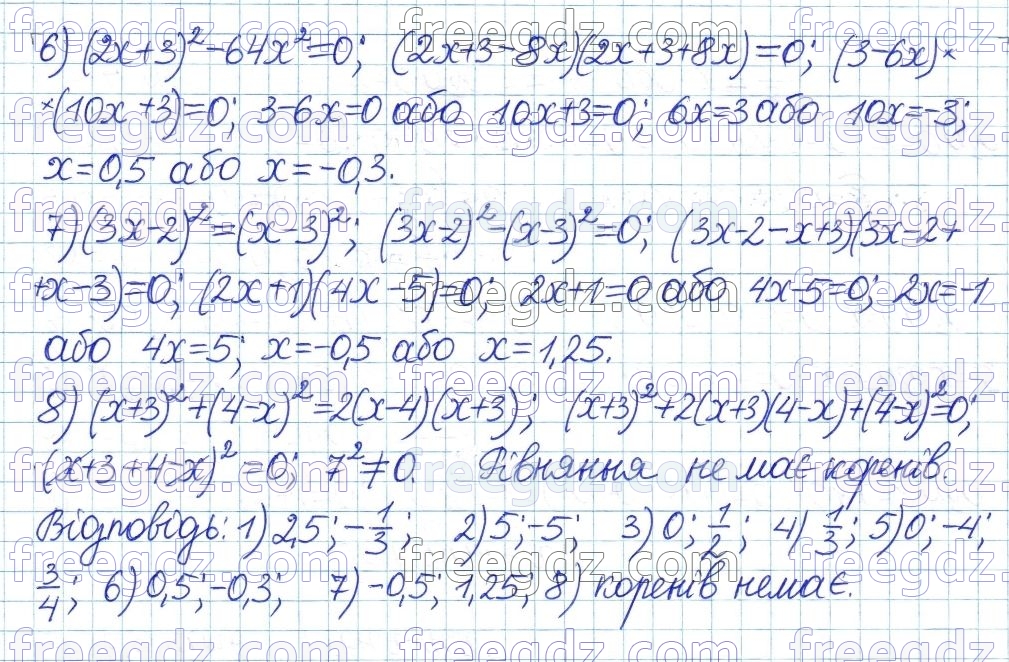 6) (2x+3)²-64x²=0; (2x+3-8x)(2x+3+8x)=0; (3-6x)×
×(10x+3)=0; 3-6x=0 або 10x+3=0; 6x=3 або 10x=-3;
x=0,5 або x=-0,3.
7) (3x-2)²=(x-3)²; (3x-2)²-(x-3)²=0; (3x-2-x+3)(3x-2+
+x-3)=0; (2x+1)(4x-5)=0; 2x+1=0 або 4x-5=0; 2x=-1
або 4x=5; x=-0,5 або x=1,25.
8) (x+3)²+(4-x)²=2(x-4)(x+3); (x+3)²+2(x+3)(4-x)+(4-x)²=0;
(x+3+4-x)²=0; 7²≠0. Рівняння не має коренів.
Відповідь: 1) 2,5; -1/3; 2) 5; -5; 3) 0; 1/2; 4) 1/3; 5) 0; -4;
3/4; 6) 0,5; -0,3; 7) -0,5; 1,25; 8) коренів немає.